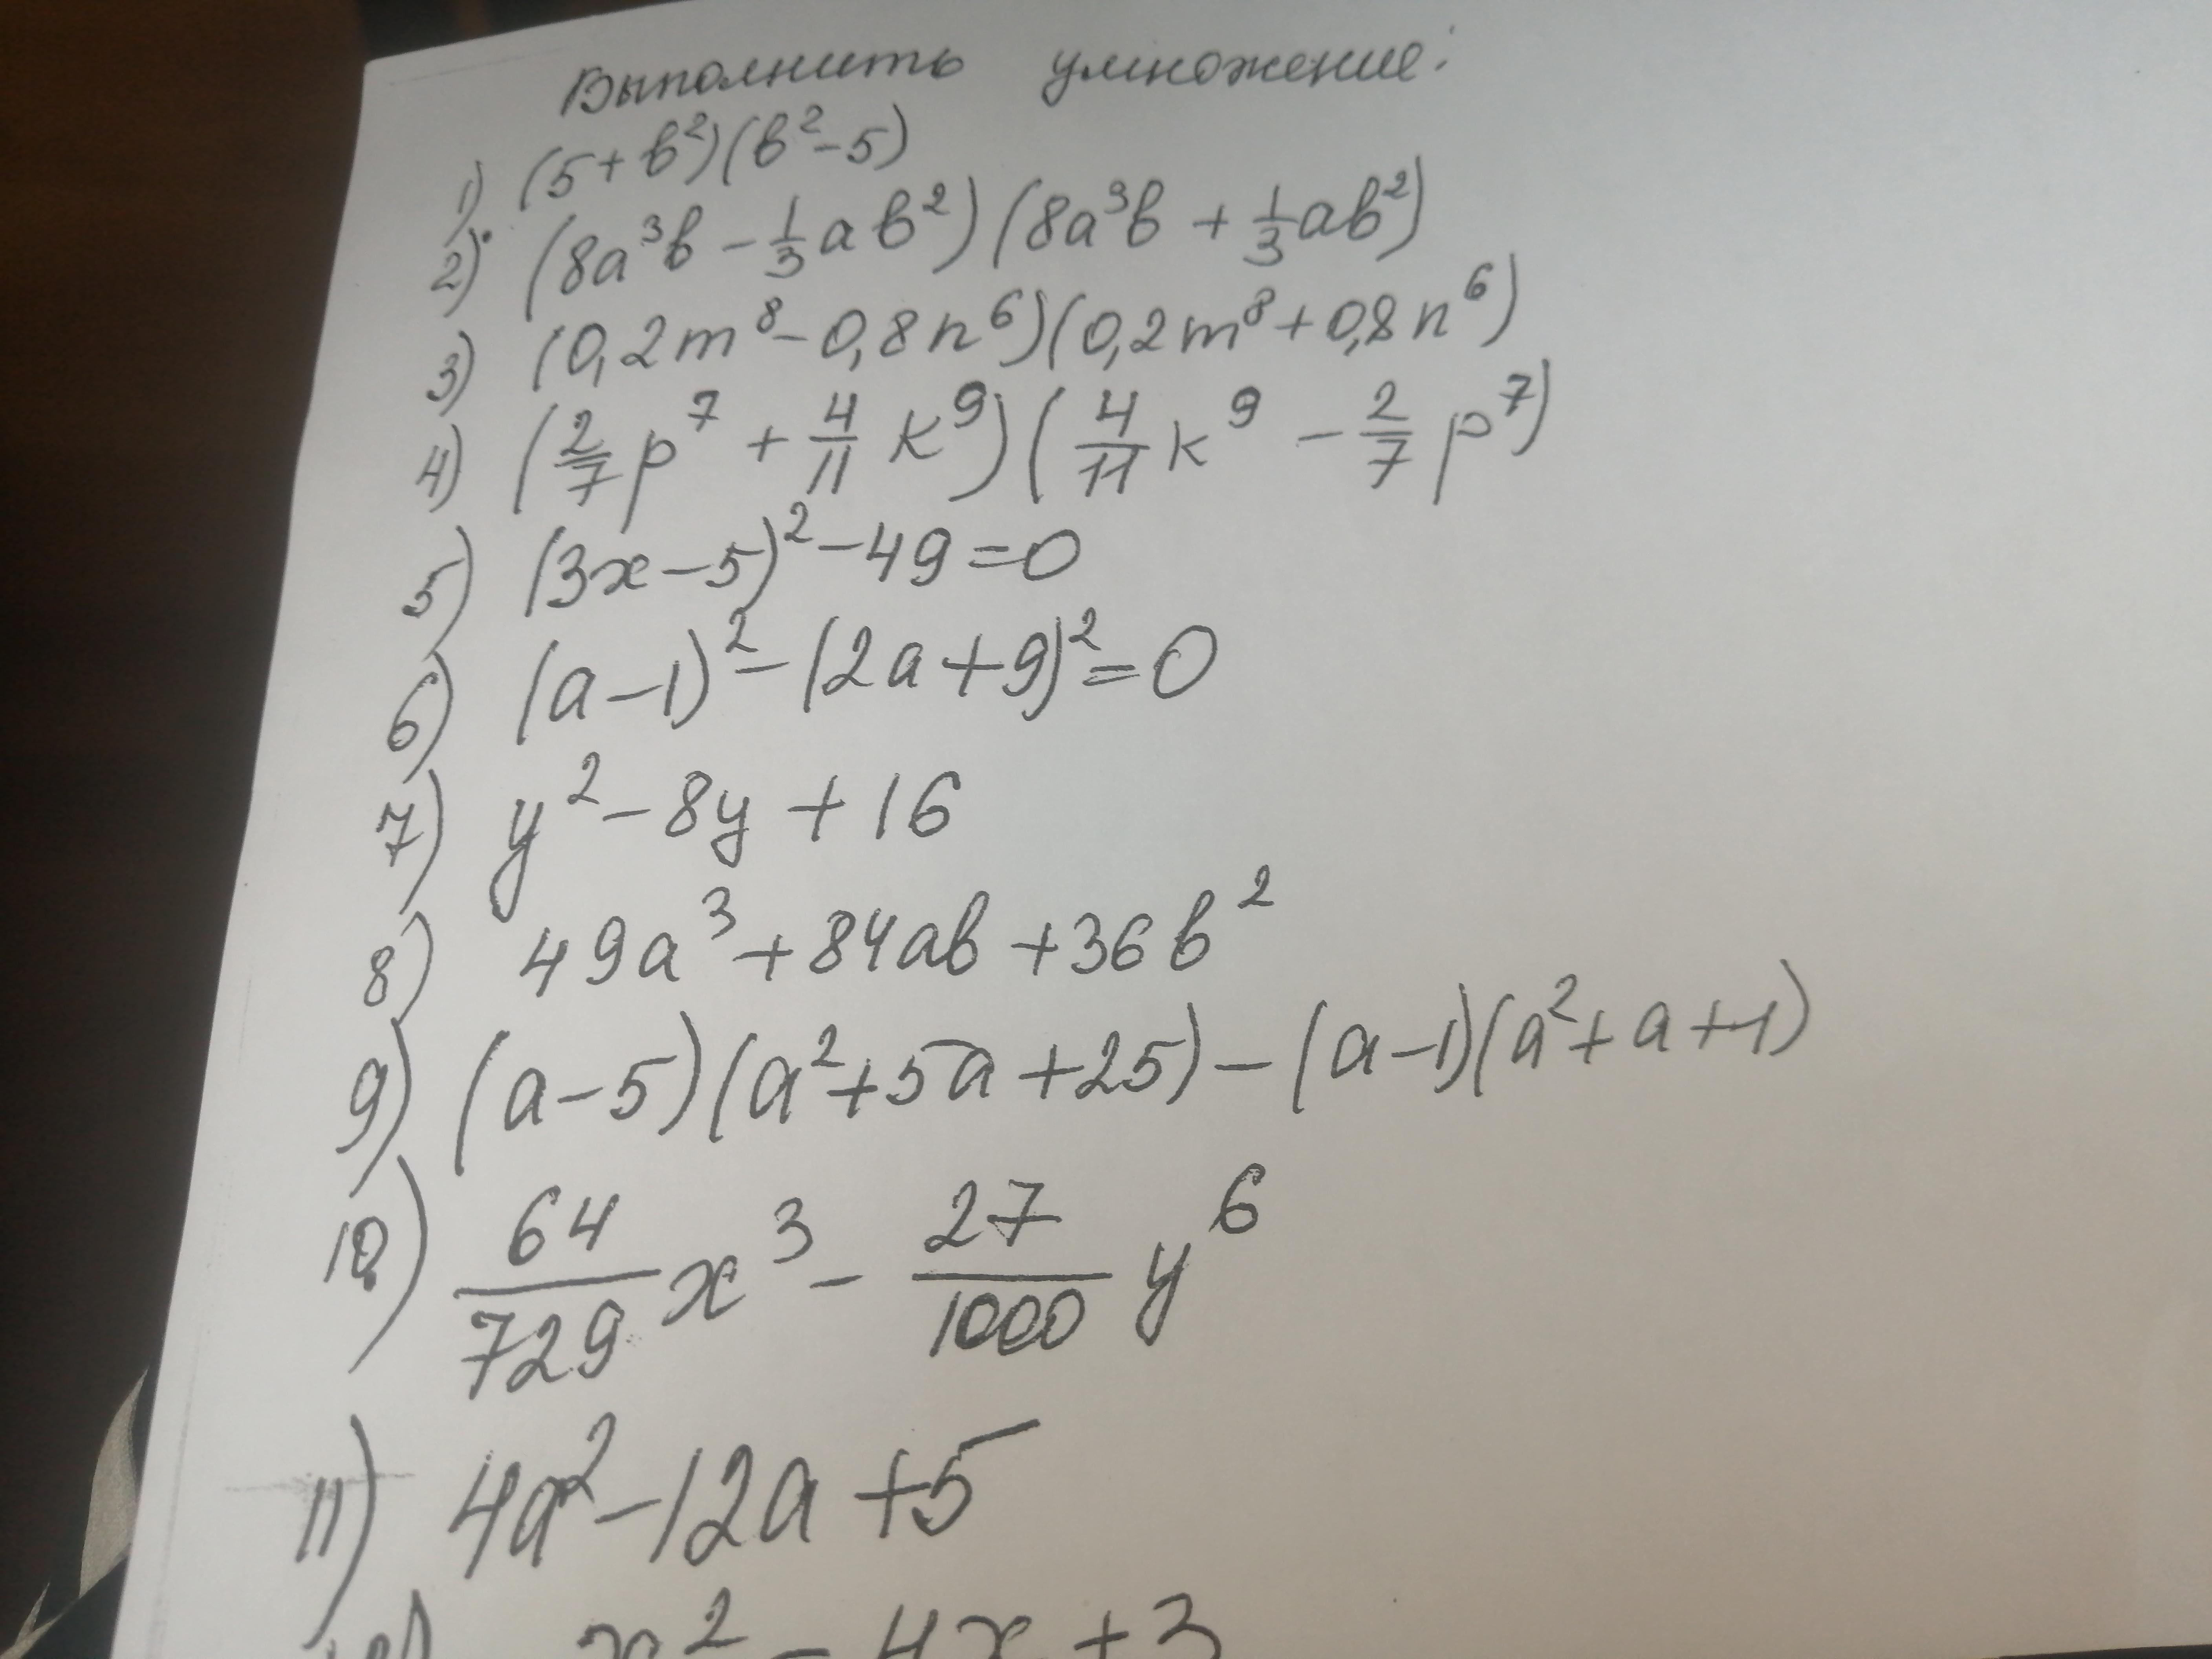 Выполнить умножение:
1) (5+в²)(в²-5)
2) (8a³в - 1/3 aв²)(8a³в + 1/3 aв²)
3) (0,2m⁸ - 0,8n⁶)(0,2m⁸ + 0,8n⁶)
4) (2/7 p⁷ + 4/11 k⁹)(4/11 k⁹ - 2/7 p⁷)
5) (3x-5)² - 49 = 0
6) (a-1)² - (2a+9)² = 0
7) y² - 8y + 16
8) 49a³ + 84aв + 36в²
9) (a-5)(a²+5a+25) - (a-1)(a²+a+1)
10) 64/729 x³ - 27/1000 y⁶
11) 4a² - 12a + 5
12) x² - 4x + 3